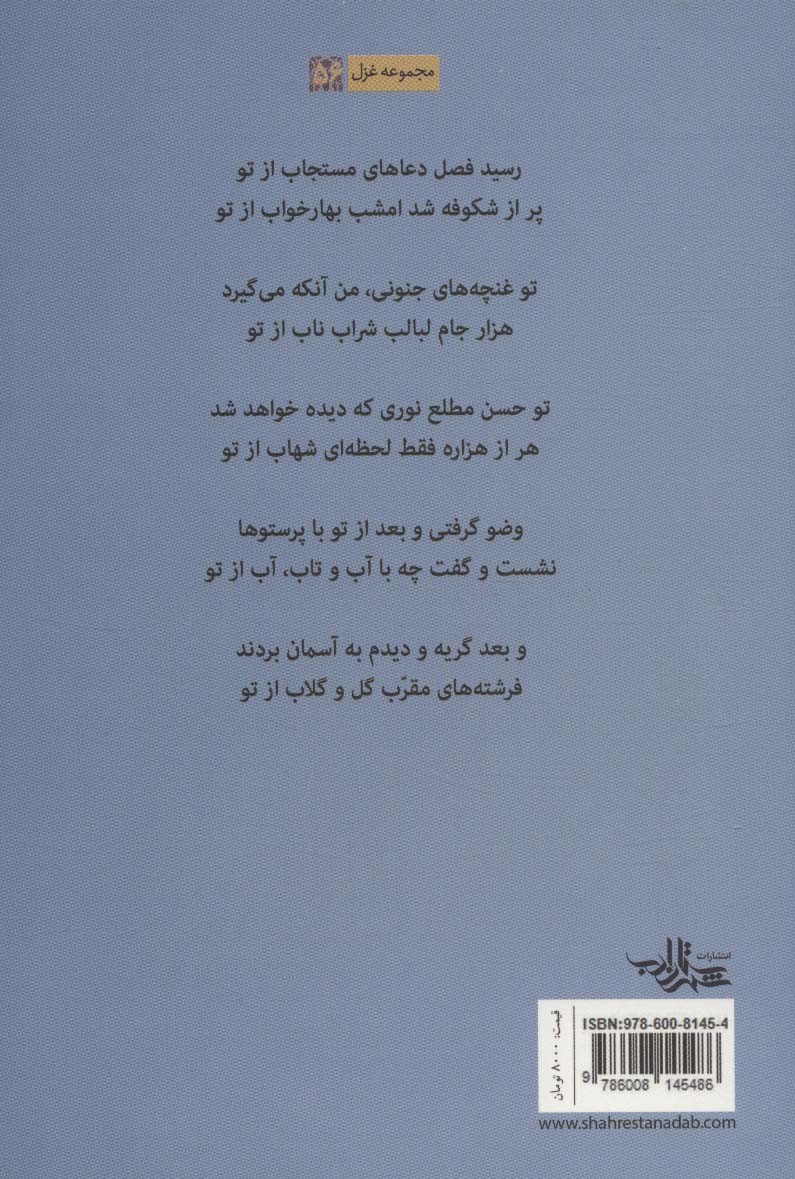 مجموعه غزل ۵۶
رسید فصل دعاهای مستجاب از تو
پر از شکوفه شد امشب بهارخواب از تو
تو غنچه‌های جنونی، من آنکه می‌گیرد
هزار جام لبالب شراب ناب از تو
تو حسن مطلع نوری که دیده خواهد شد
هر از هزاره فقط لحظه‌ای شهاب از تو
وضو گرفتی و بعد از تو با پرستوها
نشست و گفت چه با آب و تاب، آب از تو
و بعد گریه و دیدم به آسمان بردند
فرشته‌های مقرّب گل و گلاب از تو
انتشارات
شهرستان ادب
قیمت: ۸۰۰۰ تومان
ISBN:978-600-8145-4
9 786008 145486
www.shahrestanadab.com